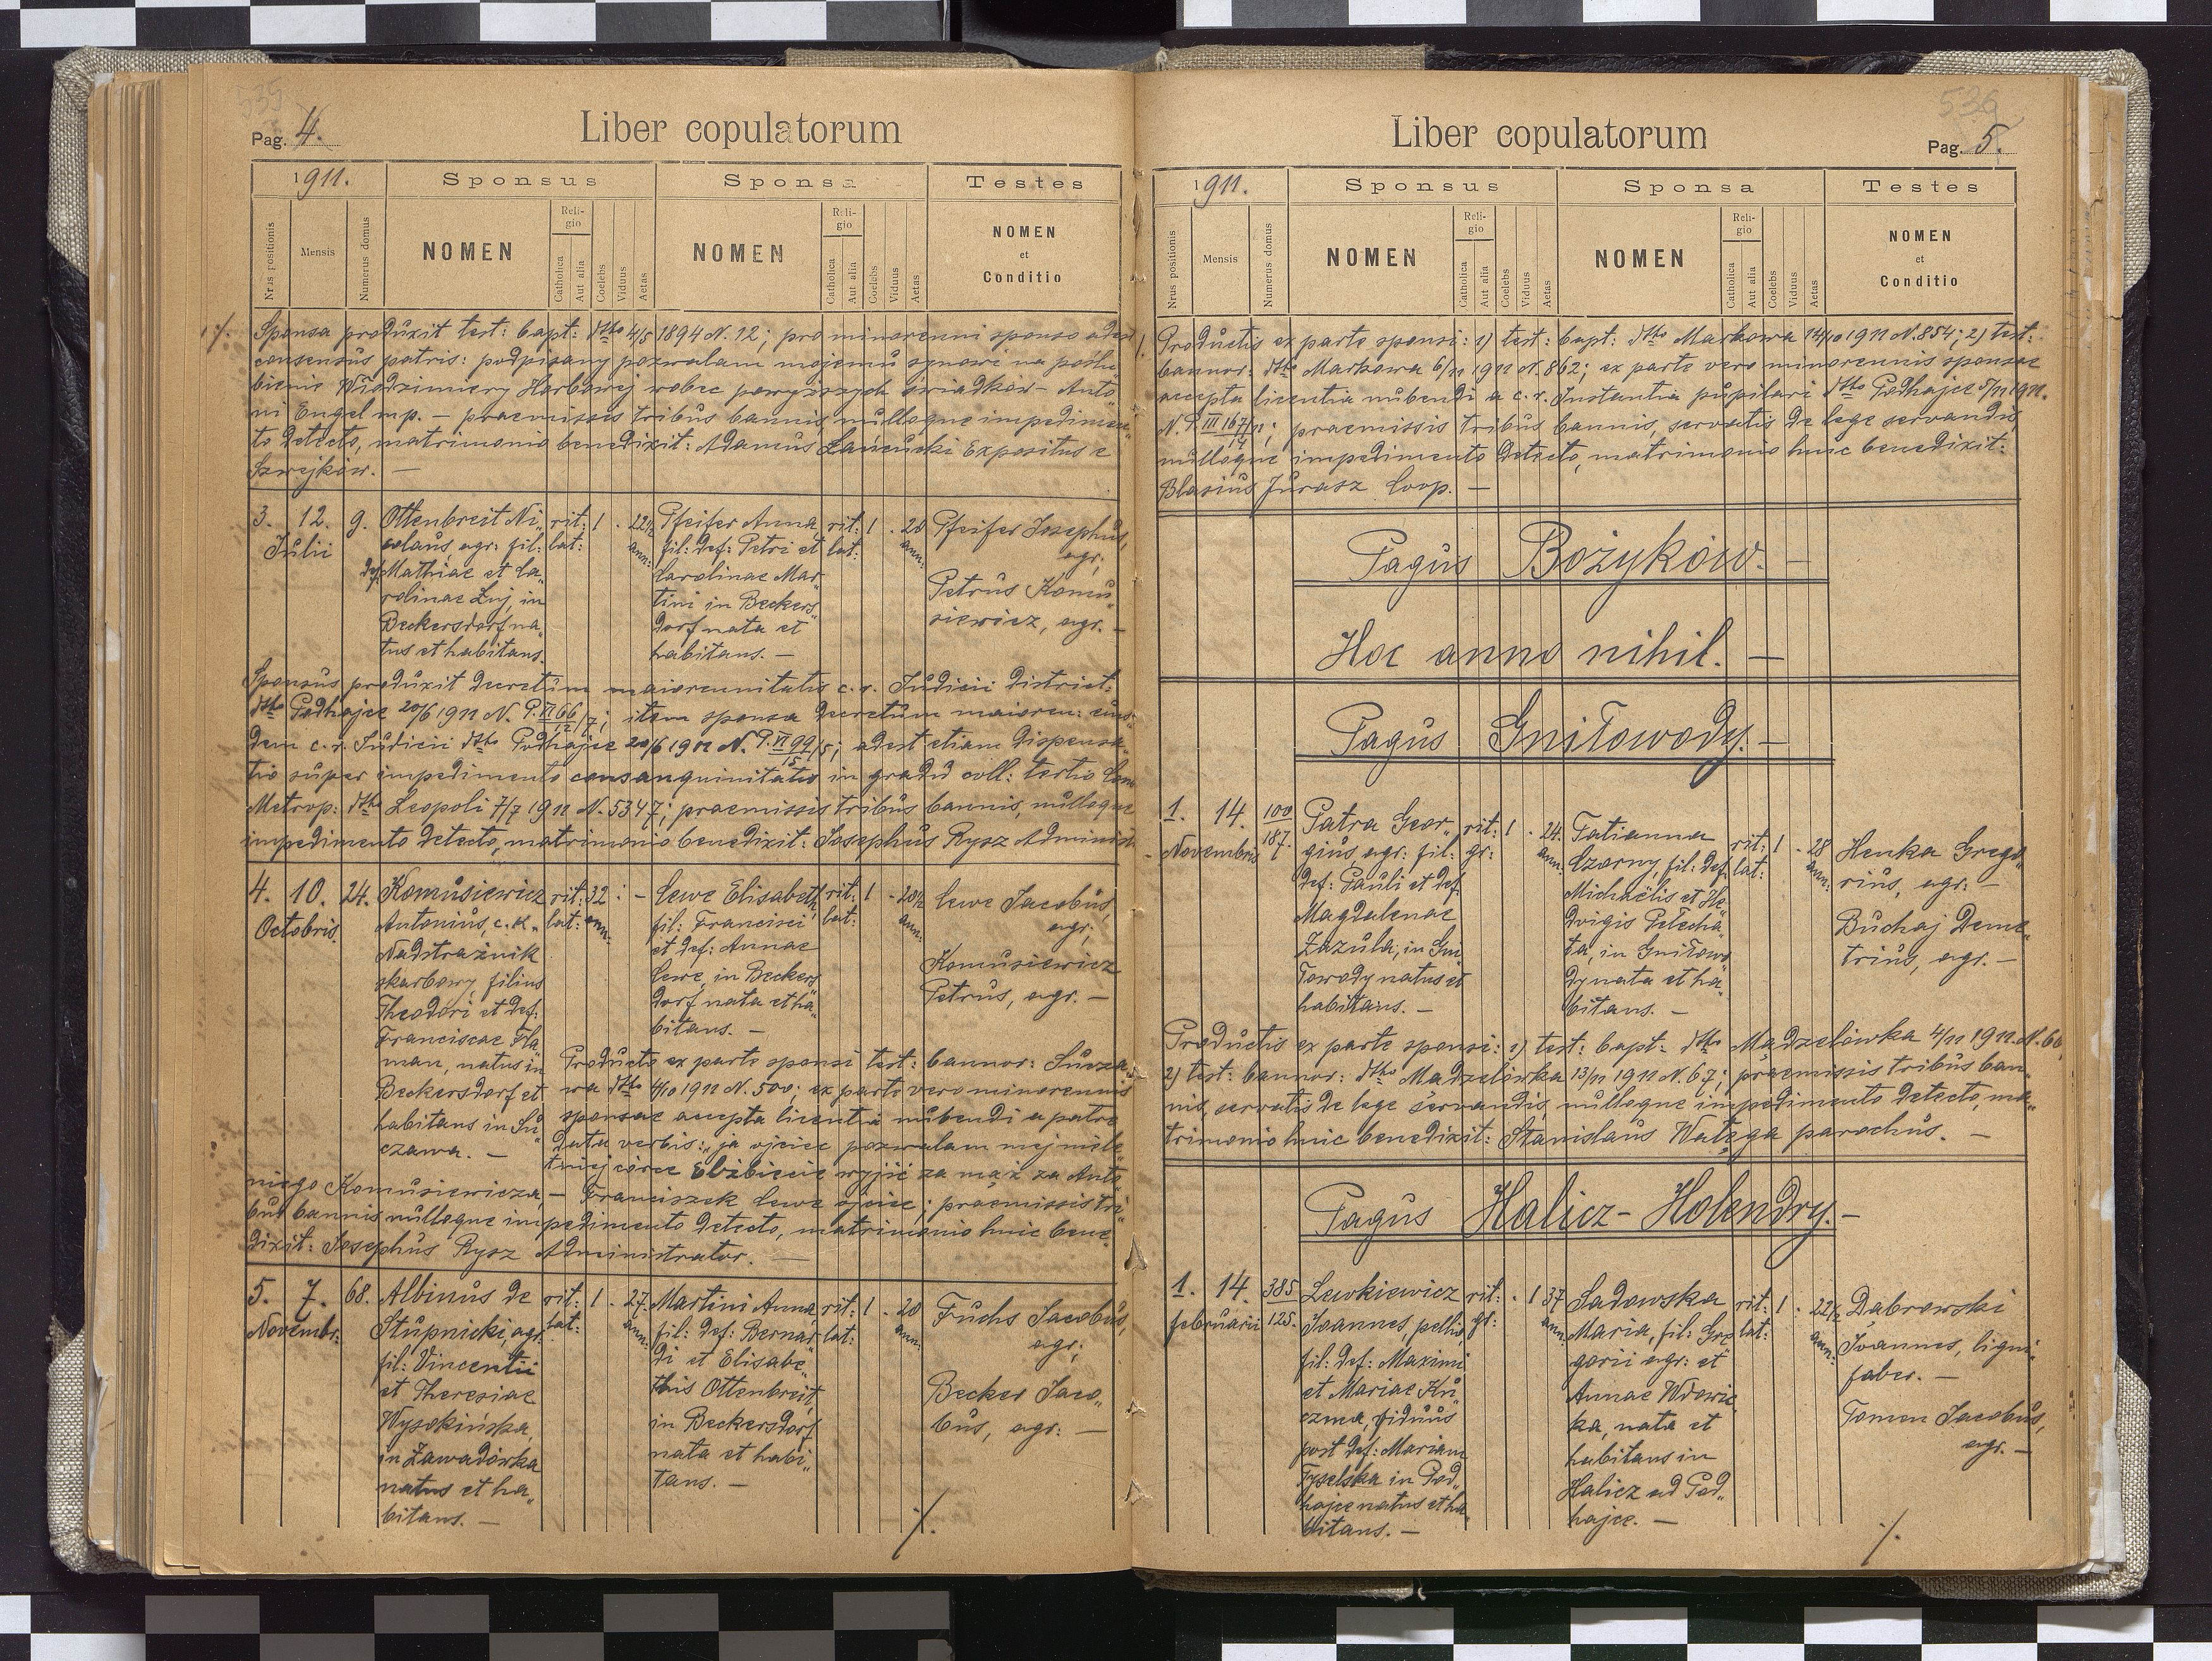 535
Pag. 4.
Liber copulatorum
1911.
Sponsus
Sponsa
Testes
Nrus positionis
Mensis
Numerus domus
NOMEN
Religio
Catholica
Aut alia
Coelebs
Viduus
Aetas
NOMEN
Religio
Catholica
Aut alia
Coelebs
Viduus
Aetas
NOMEN
et
Conditio
Sponsa produxit test: bapt: dtto 4/5 1894 N. 12; pro minorenni sponso adest
consensus patris: podpisany pozwalam mojemu synowi na poślu„
bienie Włodzimiery Harbowej wobec powyższych świadków – Anto„
ni Engel mp. – praemissis tribus bannis nulloque impedimen„
to detecto, matrimonio benedixit: Adamus Łańcucki Expositus e
Szwejków. –
3. 12. 9.
Julii
Ottenbreit Ni„
colaus, agr: fil:
def. Mathiae et Ca„
rolinae Zuj, in
Beckersdorf na„
tus et habitans.
rit:
lat:
1 . 22½
ann:
Pfeifer Anna
fil: def: Petri et
Carolinae Mar„
tini in Beckers„
dorf nata et
habitans. –
rit:
lat:
1 . 20
ann:
Pfeifer Josephus,
agr;
Petrus Komu„
siewicz, agr. –
Sponsus produxit decretum maiorennitatis c. r. Judicii district:
dtto Podhajce 20/6 1911 N. P. VI 66/12/7; item sponsa decretum maioren: eius„
dem c. r. Judicii dtto Podhajce 20/6 1911 N. P. VI 99/15/5; adest etiam dispensa„
tio super impedimento consanguinitatis in gradu coll: tertio Cons
Metrop: dtto Leopoli 7/7 1911 N. 5347; praemissis tribus bannis, nulloque
impedimento detecto, matrimonio benedixit: Josephus Rysz Administr
4. 10. 24.
Octobris.
Komusiewicz
Antonius, c. k.
Nadstrażnik
skarbowy, filius
Theodori et def:
Franciscae Fla„
man, natus in
Beckersdorf et
habitans in Su„
czawa. –
rit:
lat:
32
ann.
: –
Lewe Elisabeth,
fil: Francisci
et def: Annae
Lewe, in Beckers„
dorf nata et ha„
bitans. –
rit:
lat:
1 - 20½
ann:
Lewe Jacobus,
agr;
Komusiewicz
Petrus, agr. –
Producto ex parte sponsi test: bannor: Sucza„
wa dtto 4/10 1911 N. 500; ex parte vero minorennis
sponsae accepta licentia nubendi a patre
data verbis: „ja ojciec pozwalam mej niele„
tniej córce Elżbiecie wyjść za mąż za Anto„
niego Komusiewicza, – Franciszek Lewe ojciec; praemissis tri„
bus bannis nulloque impedimento detecto, matrimonio huic bene„
dixit: Josephus Rysz Administrator. –
5. 7. 68.
Novembr:
Albinus de
Stupnicki, agr.
fil: Vincentii
et Theresiae
Wysokińska,
in Zawadówka
natus et ha„
bitans. –
rit:
lat:
1 . 27.
ann:
Martini Anna,
fil: def: Bernar„
di et Elisabe„
this Ottenbreit,
in Beckersdorf
nata et habi„
tans. –
rit:
lat:
1 . 20
ann:
Fuchs Jacobus,
agr;
Becker Jaco„
bus, agr: –
./.
536
Liber copulatorum
Pag. 5.
1911.
Sponsus
Sponsa
Testes
Nrus positionis
Mensis
Numerus domus
NOMEN
Religio
Catholica
Aut alia
Coelebs
Viduus
Aetas
NOMEN
Religio
Catholica
Aut alia
Coelebs
Viduus
Aetas
NOMEN
et
Conditio
Productis ex parte sponsi: 1) test: bapt: dtto Markowa 14/10 1911 N. 854; 2) test:
bannor: dtto Markowa 6/11 1911 N. 862; ex parte vero minorennis sponsae
accepta licentia nubendi a c. r. Instantia pupilari dtto Podhajce 5/11 1911.
N. P. III 167/11/4; praemissis tribus bannis, servatis de lege servandis,
nulloque impedimento detecto, matrimonio huic benedixit:
Blasius Jurasz Coop. –
Pagus Bożyków. –
Hoc anno nihil. –
Pagus Gniłowody. –
1. 14. 100/187.
Novembris
Patra Geor„
gius, agr: fil:
def: Pauli et def:
Magdalenae
Zazula, in Gni„
łowody natus et
habitans. –
rit:
gr:
1 . 24.
ann:
Tatianna
Czorny, fil: def:
Michaëlis et He„
dvigis Pełecha„
ta, in Gniłowo„
dy nata et ha„
bitans. –
rit:
lat:
1 . 28
ann:
Henka Grego„
rius, agr: –
Buchaj Deme„
trius, agr. –
Productis ex parte sponsi: 1) test: bapt: dtto Madzelówka 4/11 1911. N. 60,
2) test: bannor: dtto Madzelówka 13/11 1911 N. 67; praemissis tribus ban„
nis, servatis de lege servandis, nulloque impedimento detecto, ma„
trimonio huic benedixit: Stanislaus Wałęga parochus. –
Pagus Halicz-Holendry. –
1. 14. 385/125.
februarii
Lewkiewicz
Joannes, pellio,
fil: def: Maximi
et Mariae Ku„
czma, viduus
post def: Mariam
Tyselska in Pod„
hajce natus et ha„
bitans. –
rit:
gr:
. 1 37
ann:
Sadowska
Maria, fil: Gre„
gorii agr: et
Annae Wdowic„
ka, nata et
habitans in
Halicz ad Pod„
hajce. –
rit:
lat:
1 . 22½
ann:
Dąbrowski
Joannes, ligni„
faber. –
Tomen Jacobus,
agr. –
./.